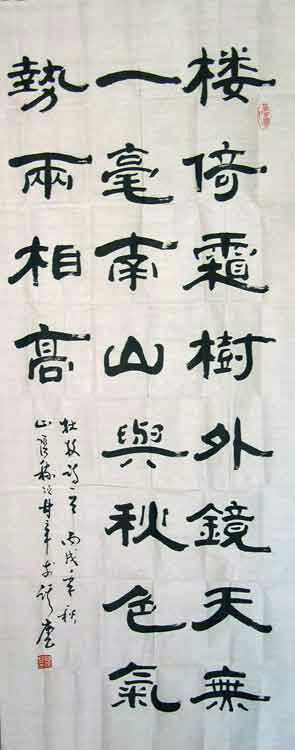 楼倚霜樹外鏡天無
一毫南山與秋色氣
勢兩相高
杜牧詩 丙戌年秋